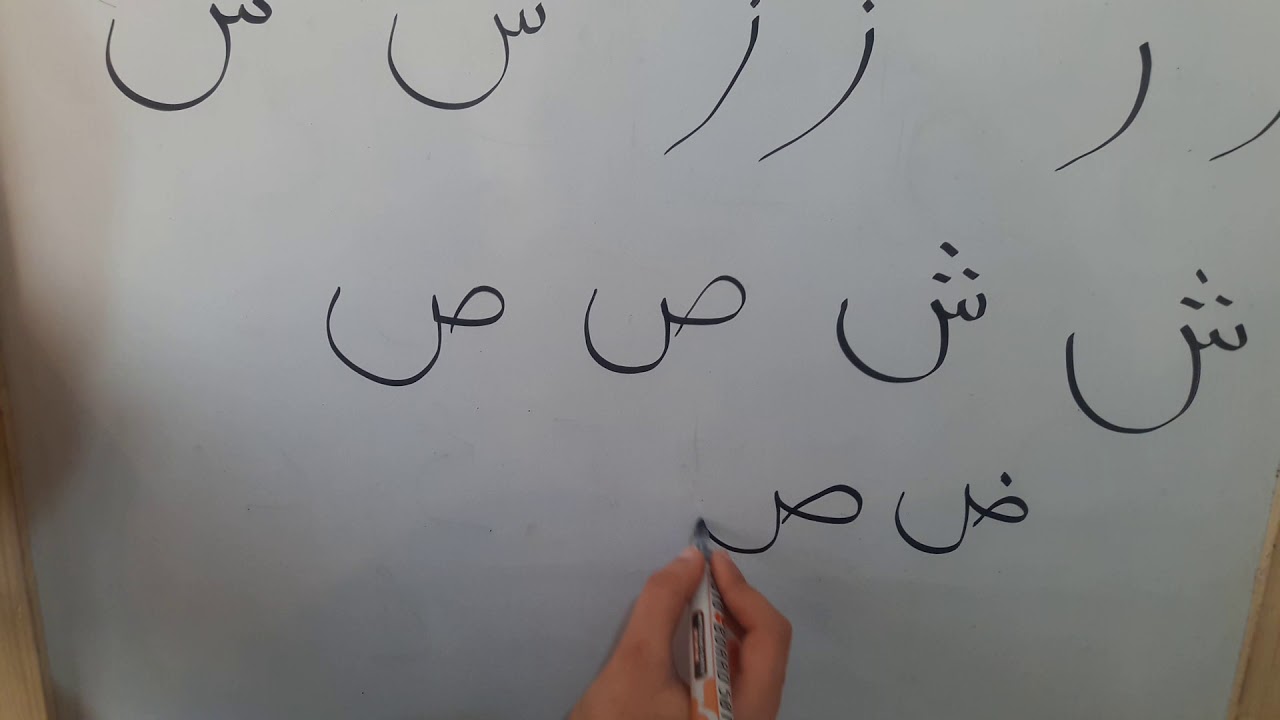 ر ر ز ز س س
ش ش ص ص
ض ص